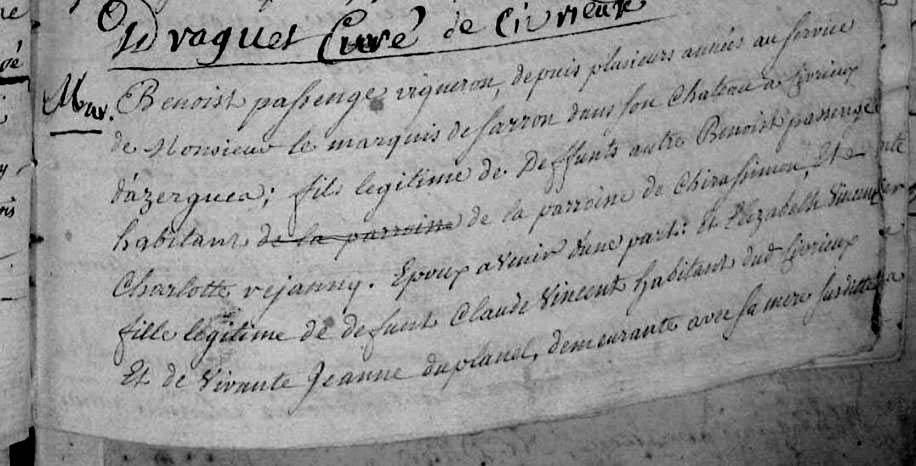 Draguet Curé de Civrieux
Mar. Benoist passenge vigneron, depuis plusieurs années au service
de Monsieur le marquis de Sarron dans son Chateau a Civrieux
d'azergues; fils legitime de Deffunts autre Benoist passenge
habitant de la parroisse de la parroisse de Chirassimon, Et de
Charlotte rejanny. Epoux avenir d'une part: Et Elizabeth Vincent
fille legitime de defunt Claude Vincent habitant dud Civrieux
Et de Vivante Jeanne duplanel, demeurante avec sa mere susditte a